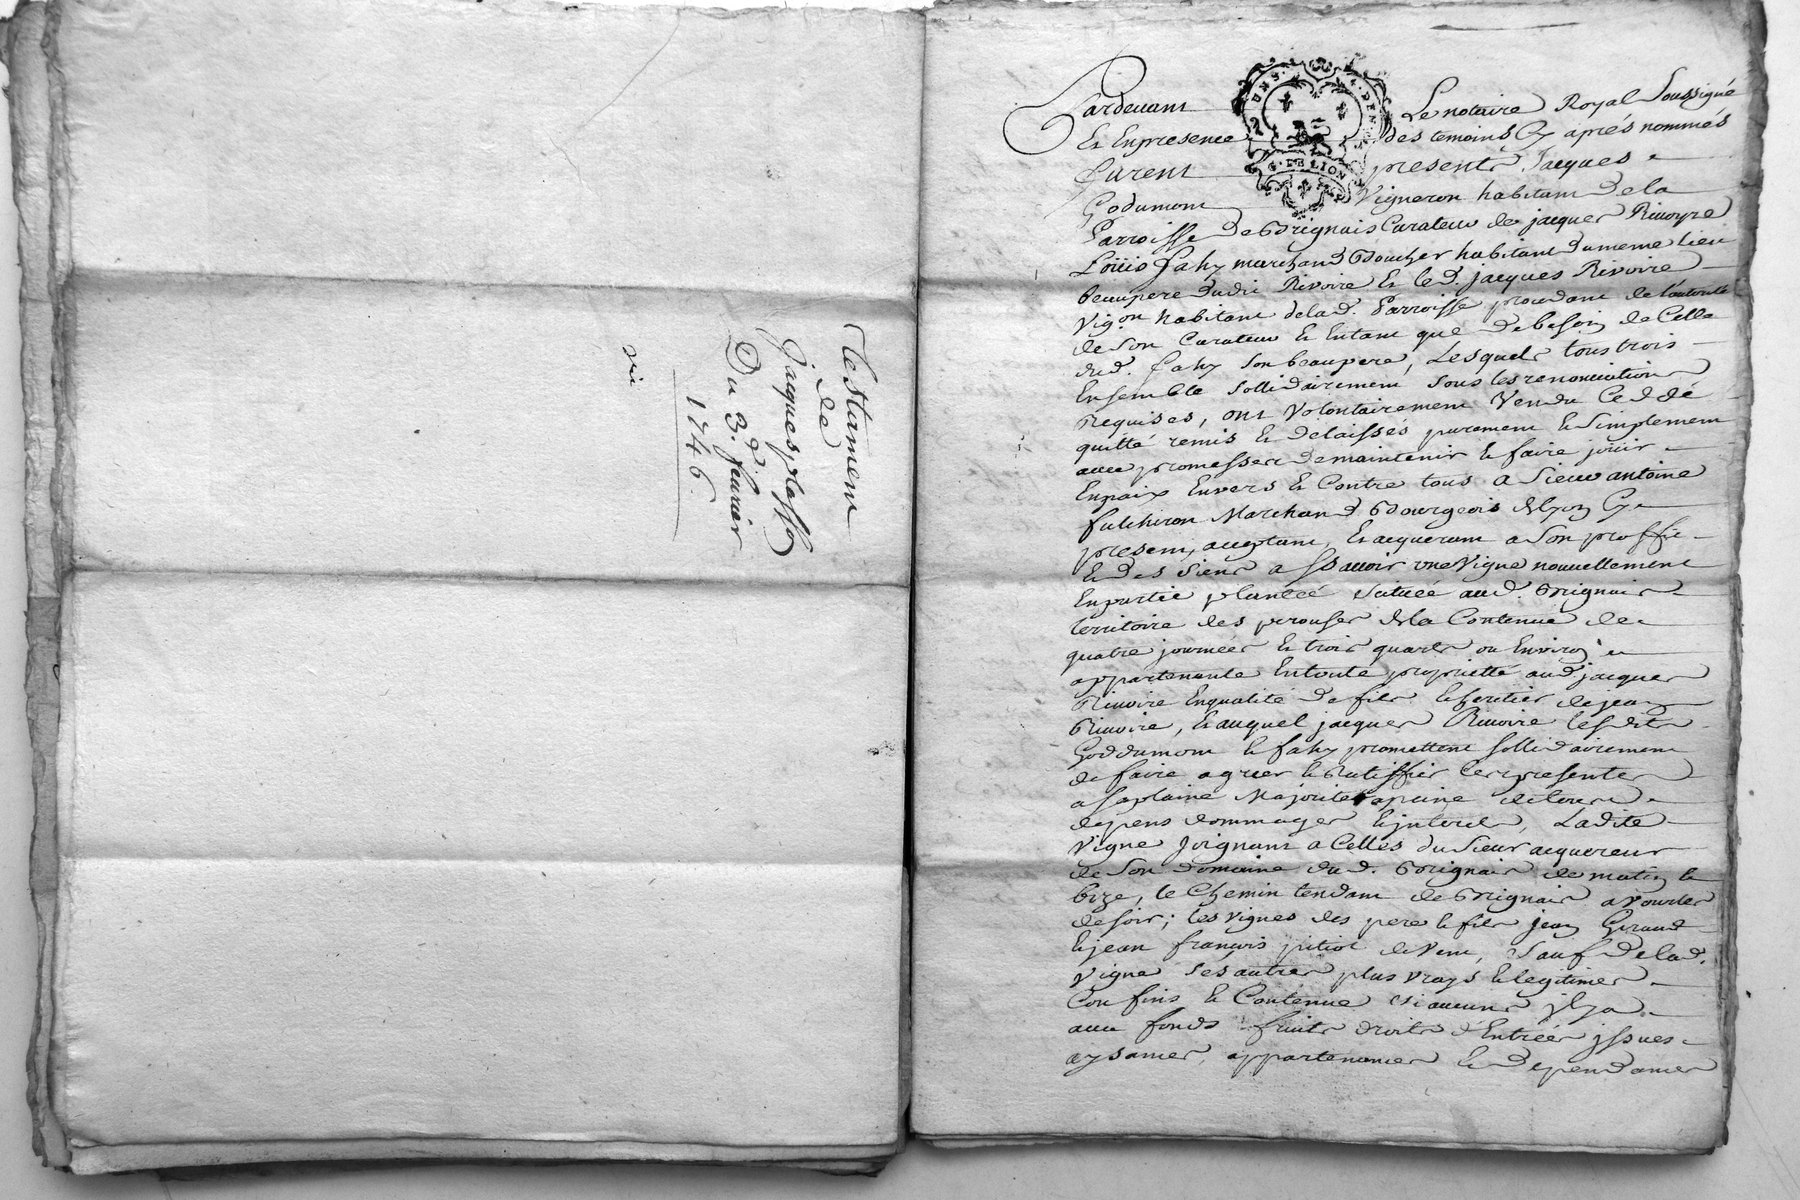 Testament
de
Jacques
Du 3.e feurier
1746.
GEN. DE LION
Pardeuant Le notaire Royal Soussigné
Et En presence des temoins Cy aprés nommés
furent presents Jacques
Godumont Vigneron habitant de la
Parroisse de Brignais Curateur de jacques Riuoyre
Loüis fahy marchand Boucher habitant du meme lieu
beaupere dudit Rivoire Et le d. jacques Rivoire
Vig.on habitant de la d. Parroisse procedant de l'autorité
de Son Curateur Et Entant que de besoin de Celle
dud. fahy Son beaupere, Lesquels tous trois
Ensemble Sollidairement Sous les renonciations
Requises, ont Volontairement Vendu Ceddé
quitté remis Et delaissés purement Et Simplement
auec promesses de maintenir Et faire joüir
Enpaix Envers Et Contre tous a Sieur antoine
fulchiron Marchand Bourgeois de Lyon Cy
present, acceptant, Et acquerant a Son proffit
Et des Siens assauoir vne Vigne nouuellement
En partie plantéé Scituéé aud. Brignais
territoire des perouses de la Contenue de
quatre journéés Et trois quarts ou Environ
appartenante En toute proprietté aud. jacques
Riuoire En qualité de fils Et heritier de jean
Riuoire, Et auquel jacques Riuoire lesdits
Goddumont Et fahy promettent Sollidairement
de faire agreer Et Ratiffier Ces presentes
a Sa plaine Majorité apeine de tous
depens dommages Et jnterets, Ladite
Vigne Joignant a Celles du Sieur acquereur
de Son domaine dud. Brignais de matin Et
bize, le Chemin tendant de Brignais a Vourles
de soir; les vignes des pere Et fils jean Giraud
Et jean françois pitiot de Vent, Sauf de lad.
Vigne Ses autres plus vrays Et legitimes
Confins Et Contenue Si aucuns jl y a
auec fonds fruits droits d'Entréés jssues
aysances, appartenances Et dependances